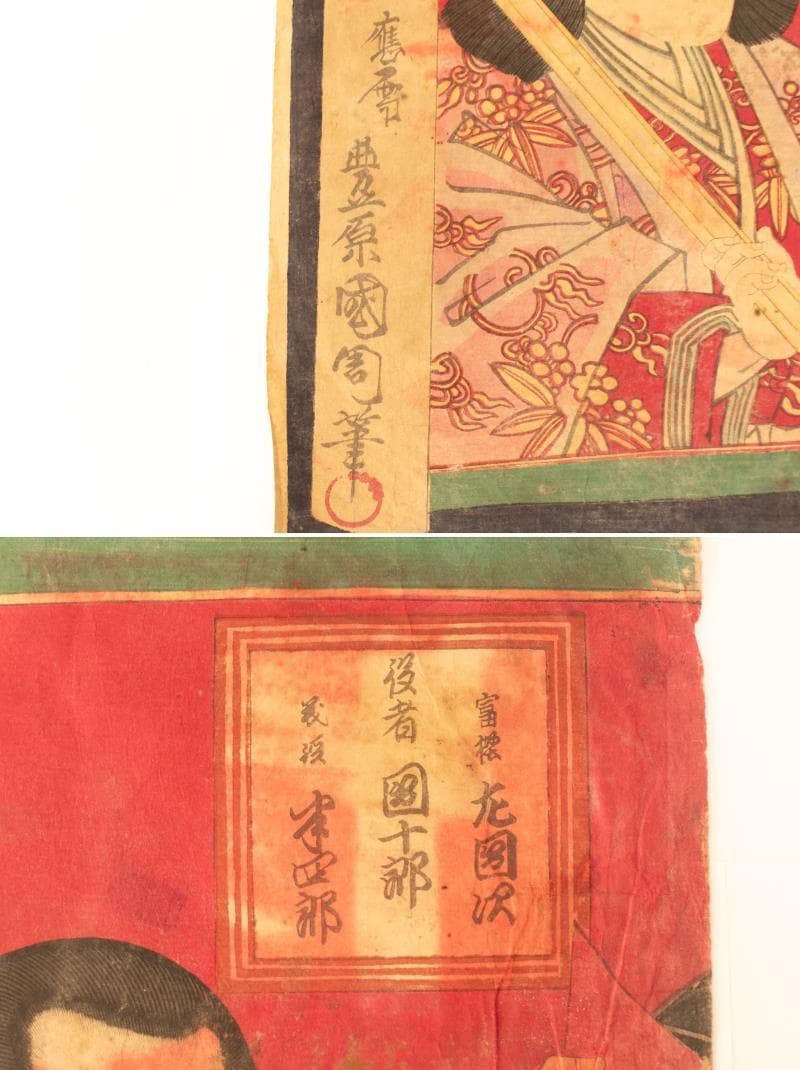 應需 豊原國周筆
富樫 左團次
役者 團十郎
義經 半四郎